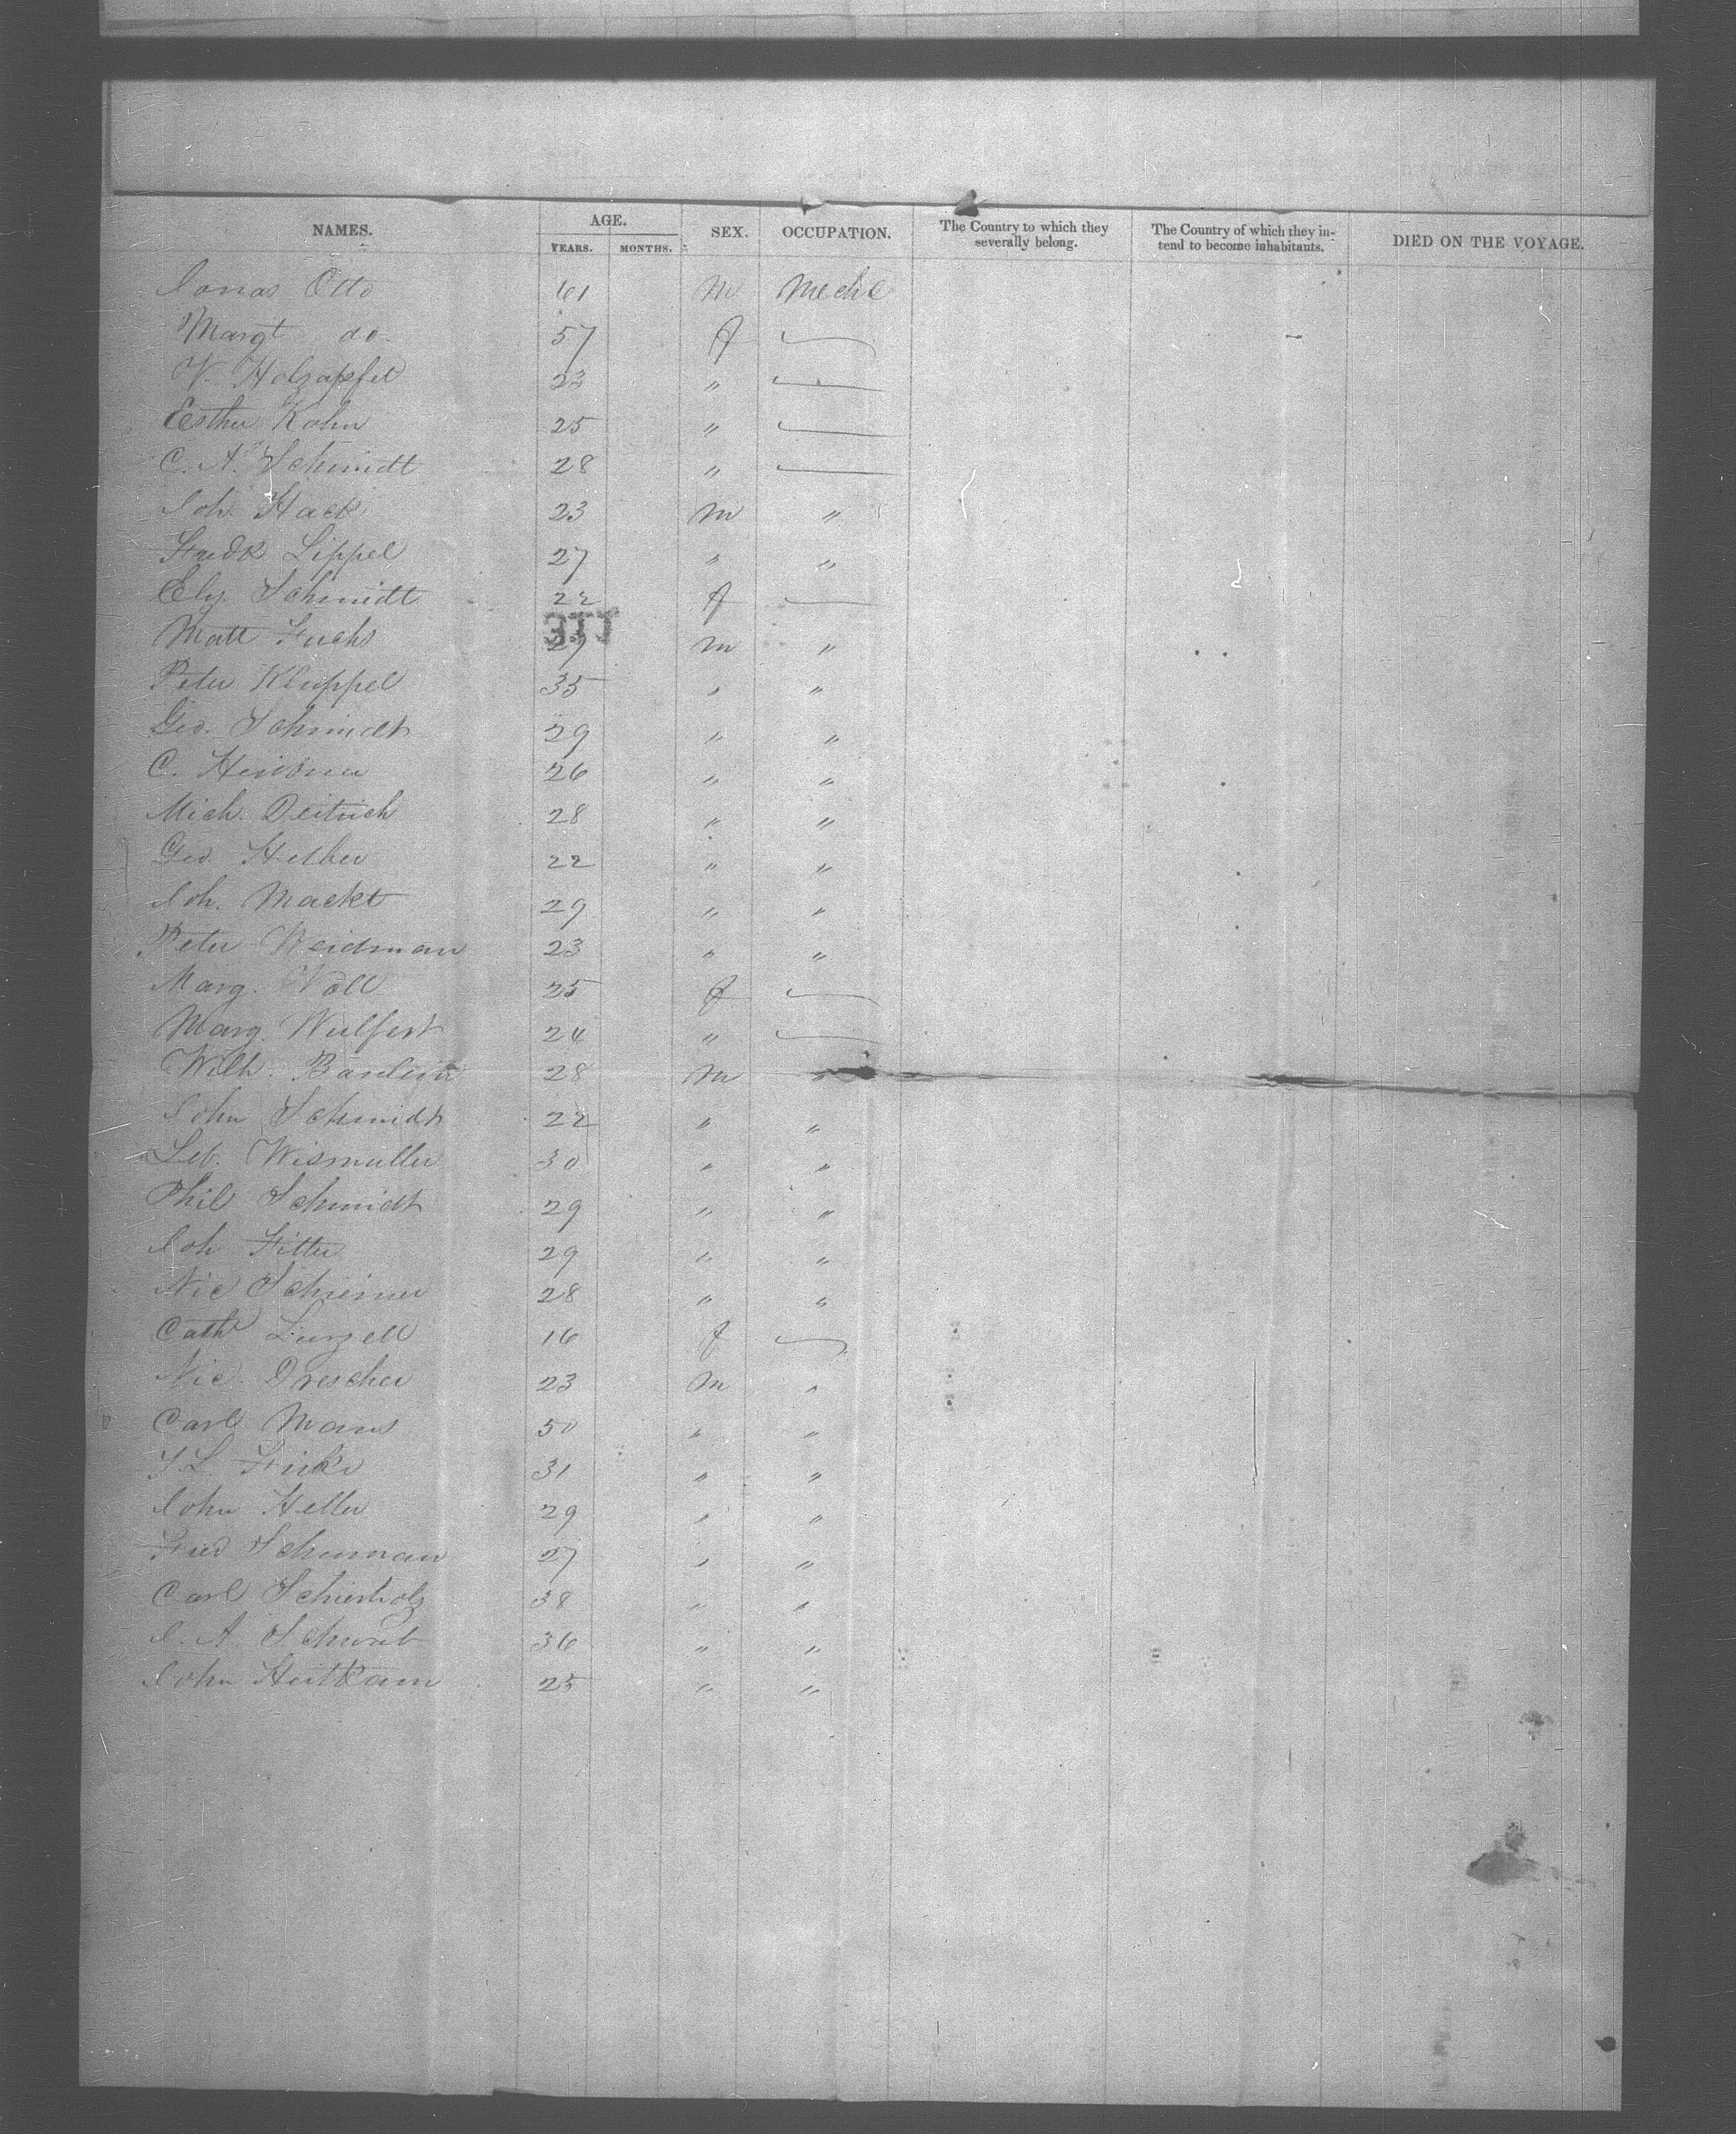 NAMES. AGE. SEX. OCCUPATION. The Country to which they severally belong. The Country of which they intend to become inhabitants. DIED ON THE VOYAGE.
YEARS. MONTHS.
Jonas Otto 61 M Mechc
Margt do. 57 f
V. Holzapfel 23 "
Esther Kohn 25 "
C. A. Schmidt 28 "
Joh. Hack 23 m "
Fredk Lippel 27 " "
Ely. Schmidt 22 f
377
Matt Fuchs 29 m "
Peter Kluppel 35 " "
Geo. Schmidt 29 " "
C. 26 " "
Mich. Deitrich 28 " "
Geo. Helber 22 " "
Joh. Mackt 29 " "
Peter Weidman 23 " "
Marg. Woll 25 f
Marg. Wulfert 24 "
Wilh. 28 m "
John Schmidt 22 " "
Leb. Wismuller 30 " "
Phil Schmidt 29 " "
Joh Fitter 29 " "
Nic Schreiner 28 " "
Cath 16 f
Nic. Drescher 23 m "
Carl Mans 50 " "
Fricke 31 " "
John Heller 29 " "
Fred Schuman 27 " "
Carl Schierholz 38 " "
J. A. Schwab 36 " "
John Heitkam 25 " "